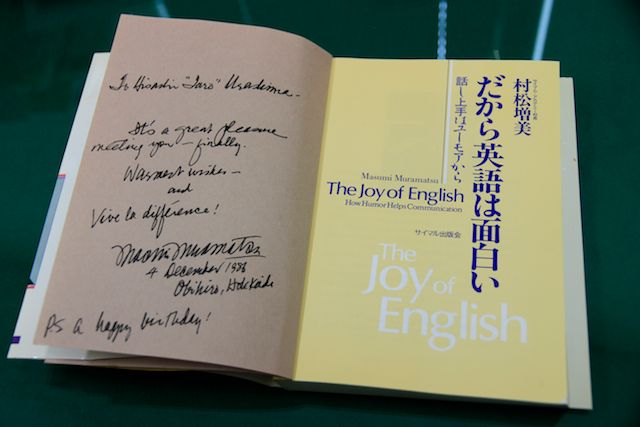 To Hisashi "Taro" Urashima —
It's a great pleasure
meeting you — finally.
Warmest wishes —
and
Vive la différence!
Masumi Muramatsu
4 December 1988
Obihiro, Hokkaido
PS a happy birthday!
村松増美
だから英語は面白い
話し上手はユーモアから
Masumi Muramatsu
The Joy of English
How Humor Helps Communication
サイマル出版会
The
Joy of
English